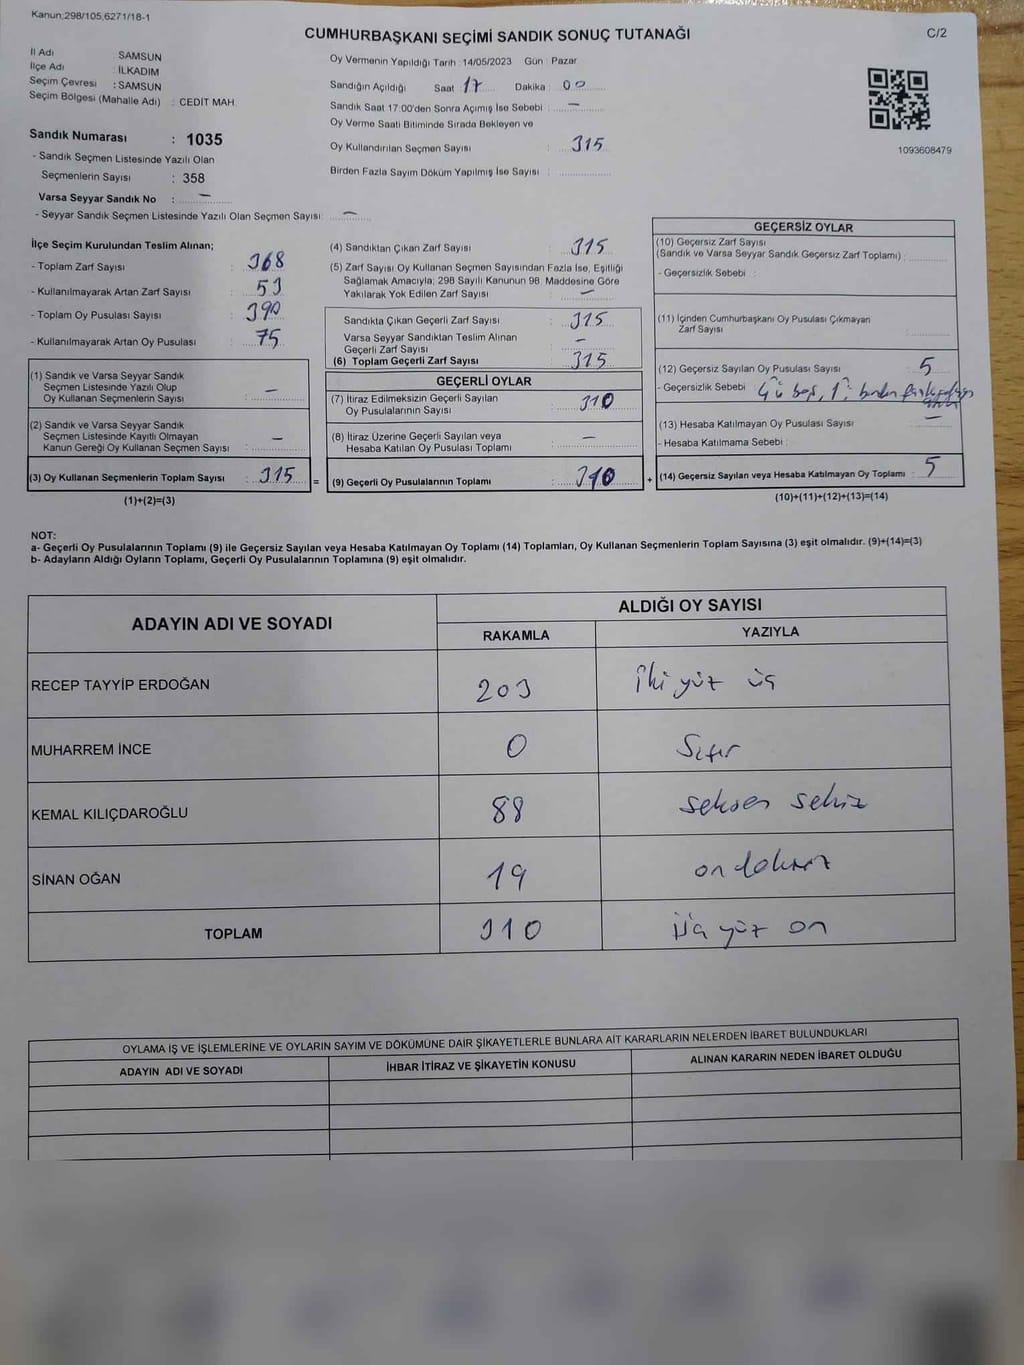 Kanun;298/105,6271/18-1
CUMHURBAŞKANI SEÇİMİ SANDIK SONUÇ TUTANAĞI
C/2
İl Adı SAMSUN
İlçe Adı : İLKADIM
Seçim Çevresi : SAMSUN
Seçim Bölgesi (Mahalle Adı) : CEDİT MAH.
Oy Vermenin Yapıldığı Tarih : 14/05/2023 Gün : Pazar
Sandığın Açıldığı Saat 17 Dakika : 00
Sandık Saat 17:00'den Sonra Açımış İse Sebebi : —
Oy Verme Saati Bitiminde Sırada Bekleyen ve
Oy Kullandırılan Seçmen Sayısı : 315
Birden Fazla Sayım Döküm Yapılmış İse Sayısı :
1093608479
Sandık Numarası : 1035
- Sandık Seçmen Listesinde Yazılı Olan
Seçmenlerin Sayısı : 358
Varsa Seyyar Sandık No : —
- Seyyar Sandık Seçmen Listesinde Yazılı Olan Seçmen Sayısı: —
İlçe Seçim Kurulundan Teslim Alınan;
- Toplam Zarf Sayısı : 368
- Kullanılmayarak Artan Zarf Sayısı : 53
- Toplam Oy Pusulası Sayısı : 390
- Kullanılmayarak Artan Oy Pusulası : 75
(1) Sandık ve Varsa Seyyar Sandık
Seçmen Listesinde Yazılı Olup
Oy Kullanan Seçmenlerin Sayısı : —
(2) Sandık ve Varsa Seyyar Sandık
Seçmen Listesinde Kayıtlı Olmayan
Kanun Gereği Oy Kullanan Seçmen Sayısı : —
(3) Oy Kullanan Seçmenlerin Toplam Sayısı : 315 =
(1)+(2)=(3)
(4) Sandıktan Çıkan Zarf Sayısı : 315
(5) Zarf Sayısı Oy Kullanan Seçmen Sayısından Fazla İse, Eşitliği
Sağlamak Amacıyla; 298 Sayılı Kanunun 98. Maddesine Göre
Yakılarak Yok Edilen Zarf Sayısı : —
Sandıkta Çıkan Geçerli Zarf Sayısı : 315
Varsa Seyyar Sandıktan Teslim Alınan
Geçerli Zarf Sayısı : —
(6) Toplam Geçerli Zarf Sayısı : 315
GEÇERLİ OYLAR
(7) İtiraz Edilmeksizin Geçerli Sayılan
Oy Pusulalarının Sayısı : 310
(8) İtiraz Üzerine Geçerli Sayılan veya
Hesaba Katılan Oy Pusulası Toplamı : —
(9) Geçerli Oy Pusulalarının Toplamı : 310 +
GEÇERSİZ OYLAR
(10) Geçersiz Zarf Sayısı
(Sandık ve Varsa Seyyar Sandık Geçersiz Zarf Toplamı) :
- Geçersizlik Sebebi :
(11) İçinden Cumhurbaşkanı Oy Pusulası Çıkmayan
Zarf Sayısı :
(12) Geçersiz Sayılan Oy Pusulası Sayısı : 5
- Geçersizlik Sebebi : 4'ü boş, 1'i birden
(13) Hesaba Katılmayan Oy Pusulası Sayısı : —
- Hesaba Katılmama Sebebi :
(14) Geçersiz Sayılan veya Hesaba Katılmayan Oy Toplamı : 5
(10)+(11)+(12)+(13)=(14)
NOT:
a- Geçerli Oy Pusulalarının Toplamı (9) ile Geçersiz Sayılan veya Hesaba Katılmayan Oy Toplamı (14) Toplamları, Oy Kullanan Seçmenlerin Toplam Sayısına (3) eşit olmalıdır. (9)+(14)=(3)
b- Adayların Aldığı Oyların Toplamı, Geçerli Oy Pusulalarının Toplamına (9) eşit olmalıdır.
ADAYIN ADI VE SOYADI
ALDIĞI OY SAYISI
RAKAMLA YAZIYLA
RECEP TAYYİP ERDOĞAN 203 iki yüz üç
MUHARREM İNCE 0 Sıfır
KEMAL KILIÇDAROĞLU 88 seksen sekiz
SİNAN OĞAN 19 on dokuz
TOPLAM 310 üç yüz on
OYLAMA İŞ VE İŞLEMLERİNE VE OYLARIN SAYIM VE DÖKÜMÜNE DAİR ŞİKAYETLERLE BUNLARA AİT KARARLARIN NELERDEN İBARET BULUNDUKLARI
ADAYIN ADI VE SOYADI İHBAR İTİRAZ VE ŞİKAYETİN KONUSU ALINAN KARARIN NEDEN İBARET OLDUĞU